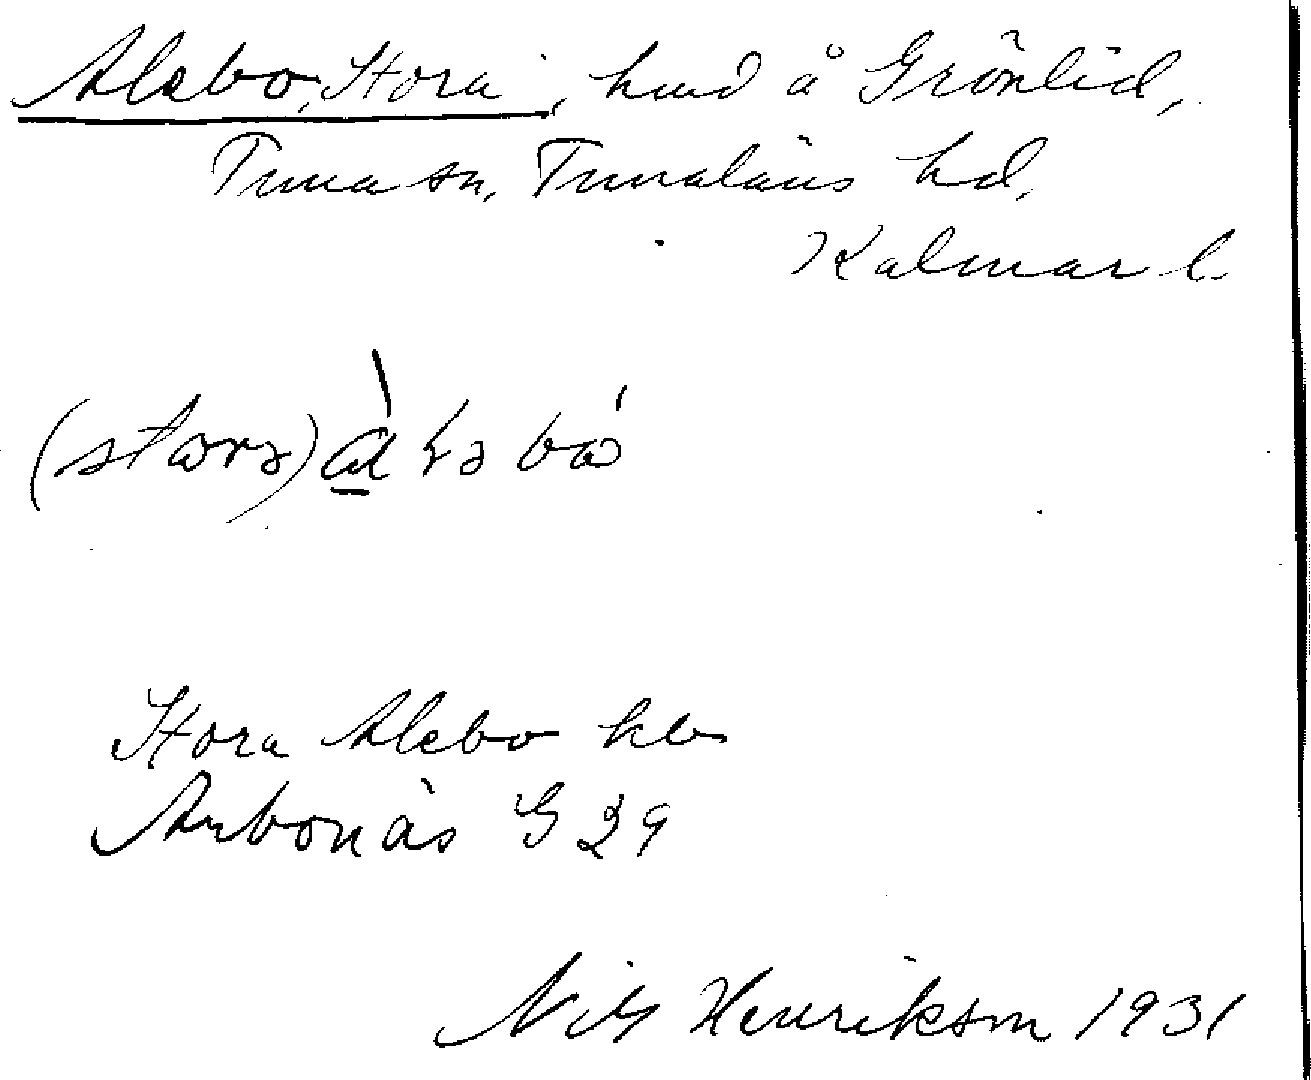 Alebo, Stora, hmd å Grönlid,
Tuna sn, Tunaläns hd,
Kalmar l.
(storə)
Stora Alebo
Arbonäs G 29
Nils Henrikson 1931